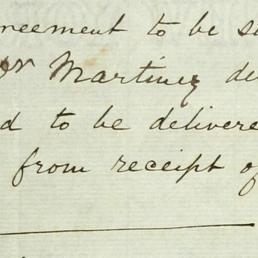 reement to be s
Mr Martinez de
d to be delivere
from receipt of